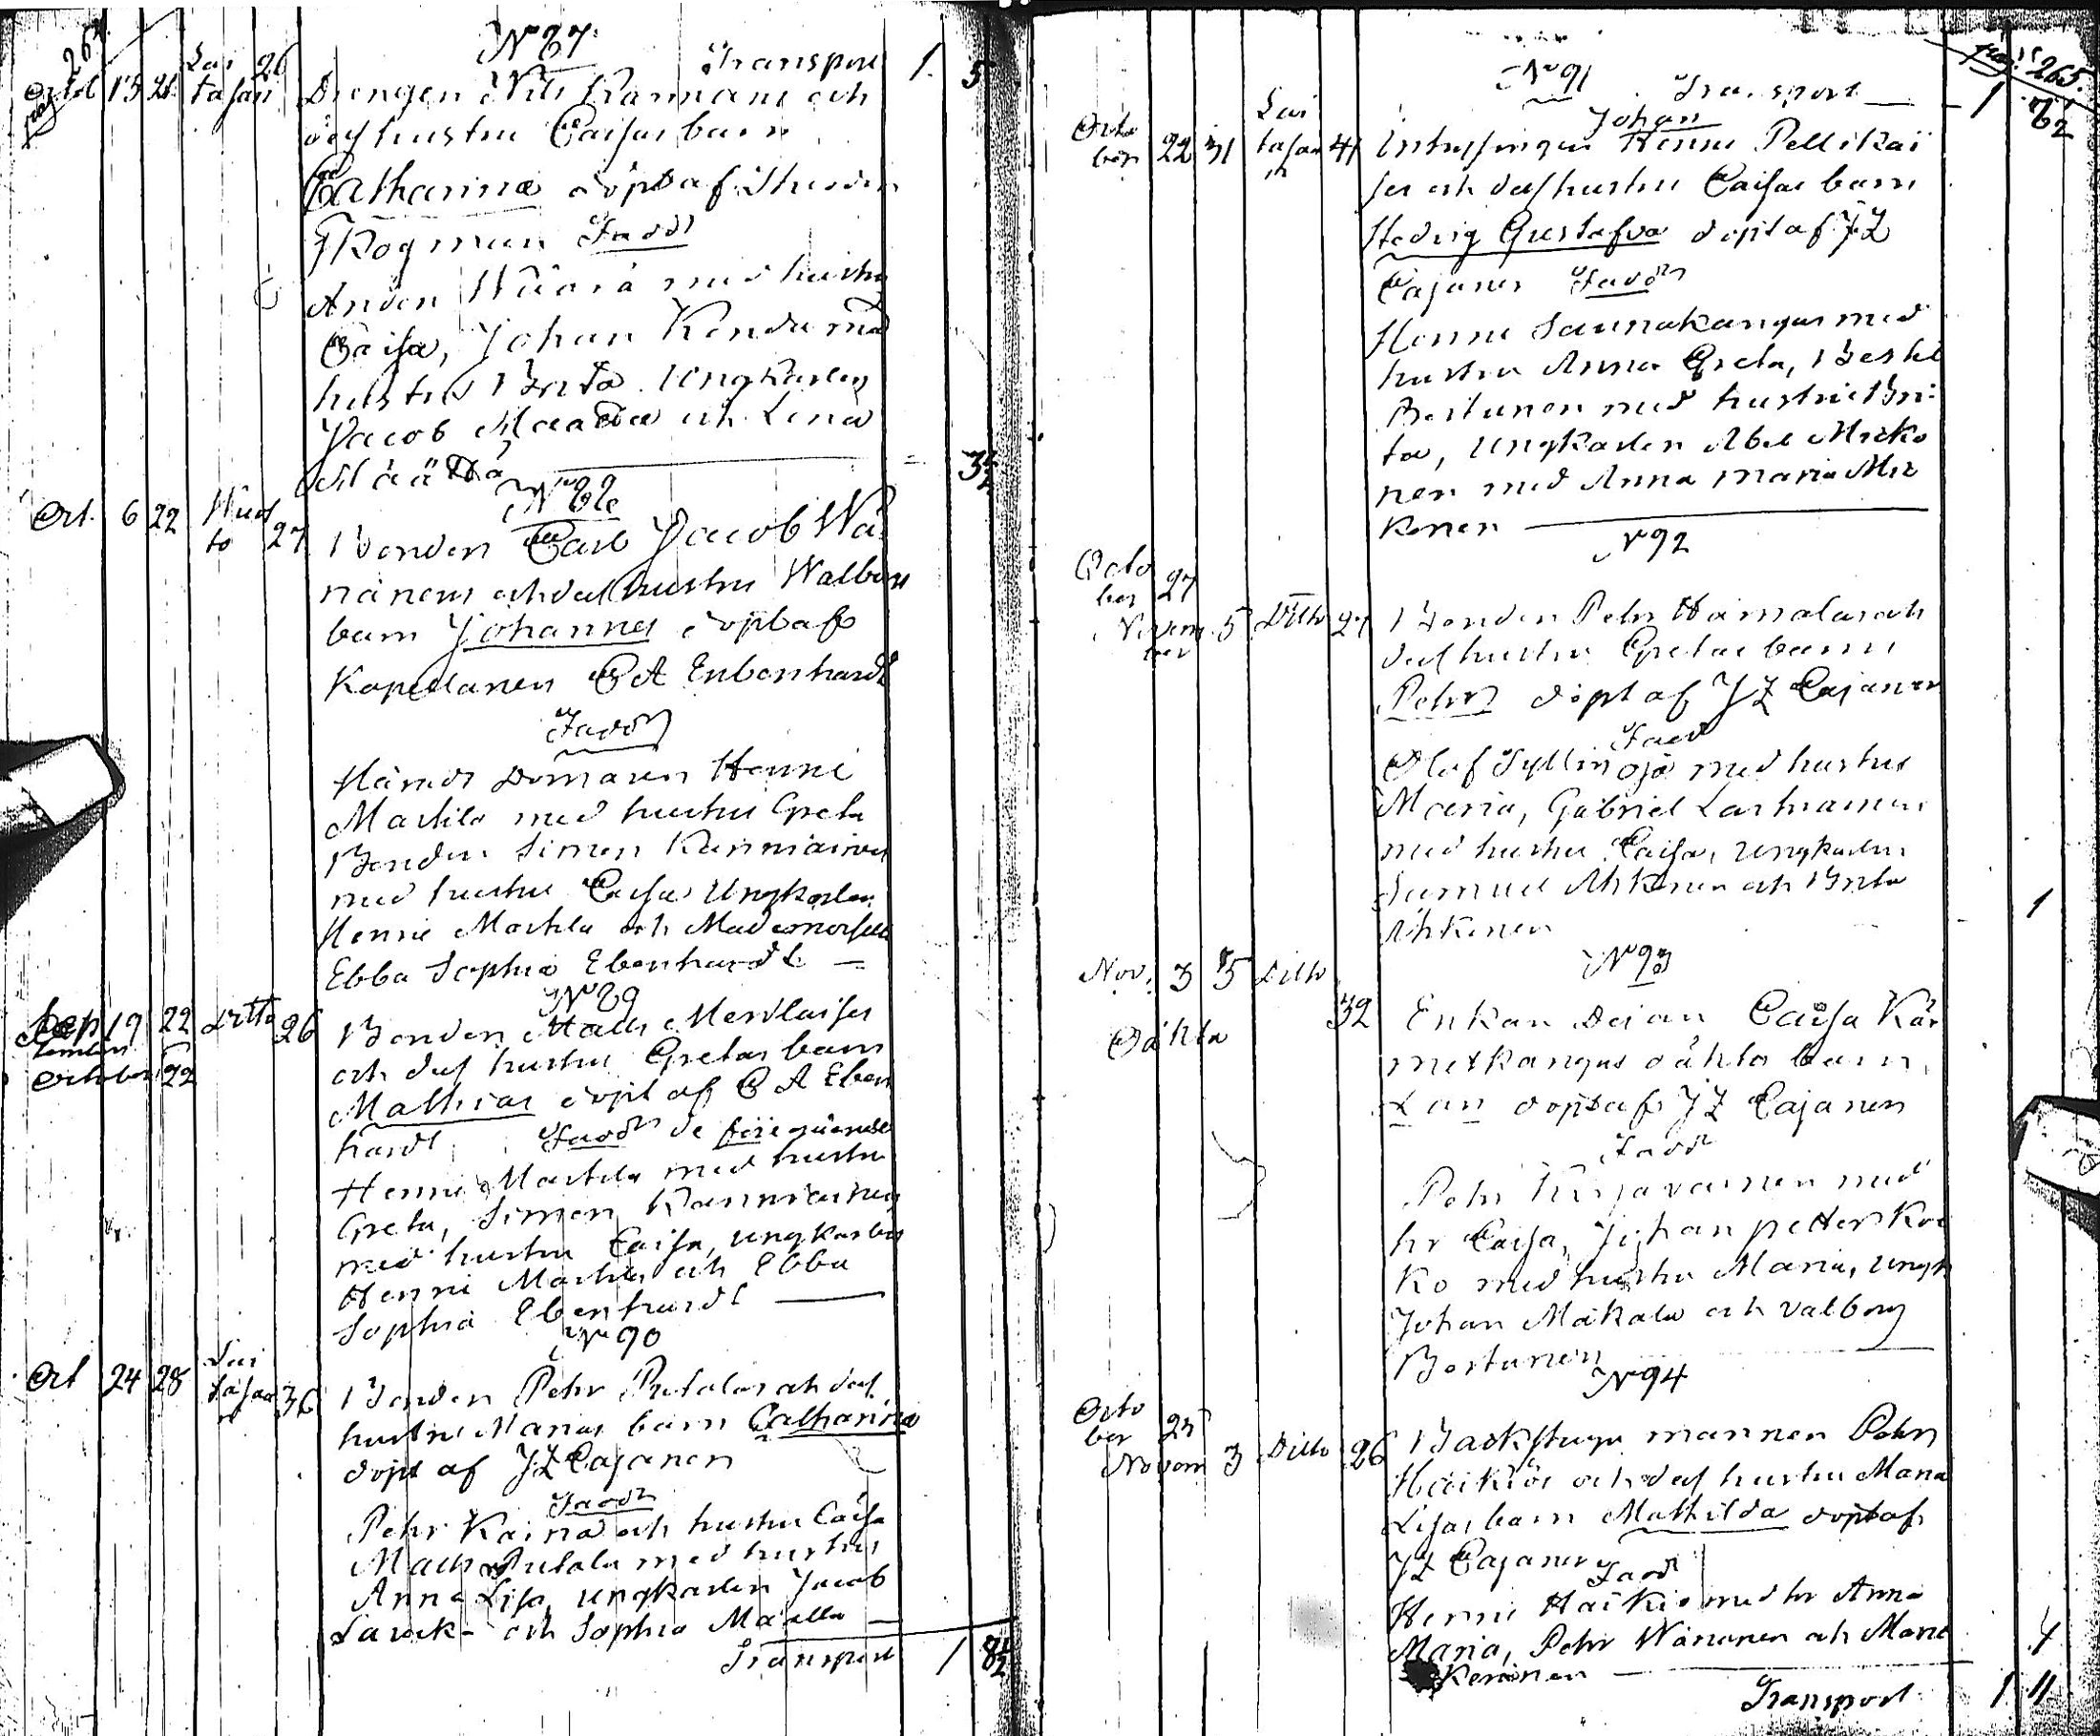 264
N 87
Transport 1. 5
Octob 15 21 Lai tasari 26
Drengen Nils Kannians och
dess hustru Caisas barn
Catharina döpt af Studen
Frosterus
Skogman Fadd
Anders Waara med hustru
Caisa, Johan Kendu med
hustru Brita Ungkarlen
Jacob Määttä och Lena
Määttä 3½
N 88
Oct. 6 22 Wuol to 27
Bonden Carl Jacob Wä
nänens och dess hustru Walborg
barn Johannes döpt af
Kapellanen C A Eubenhardt
Fadd
Härads Domaren Henric
Martila med hustru Greta
Bonden Simon Kanniainen
med hustru Caisa Ungkarlen
Henric Martila och Mademoiselle
Ebba Sophia Ebenhardt
N 89
Sep 19 22 ditto 26
temben
October 22
Bonden Matts Mervlaises
och dess hustru Gretas barn
Mathias döpt af C A Eben
hardt Fadd de föregående
Henric Martila med hustru
Greta, Simon Kanniainen
med hustru Caisa, ungkarlen
Henric Martila och Ebba
Sophia Ebenhardt
N 90
Oct 24 28 Lai tasari 36
Bonden Pehr Putalas och dess
hustru Marias barn Catharina
döpt af JZ Cajanen
Fadd
Pehr Kaina och hustru Caisa
Matts Putala med hustru
Anna Lisa, ungkarlen Jacob
och Sophia Määtta
Transport 1 8½
pag: 265.
N 91
Transport 1 7½
Octo ber 22 31 Lai tasari 41
Johan
Inhysingen Henric Pellikai
ses och dess hustru Caisas barn
Hedvig Gustafva döpt af JZ
Cajanen Fadd
Henric Saunakangas med
hustru Anna Greta,
Bertunen med hustru Bri
ta, Ungkarlen Abel Micko
nen med Anna Maria Mic
konen
N 92
Octo ber 27
Novem ber 5 Ditto 27
Bonden Pehr Hämälas och
dess hustru Gretas barn
Pehr döpt af JZ Cajanen
Fadd
Olof Tyllinoja med hustru
Maria, Gabriel Kartunainen
med hustru Caisa, ungkarlen
Samuel Ahkonen och Brita
Ahkonen 1
N 93
Nov. 3 5 Ditto 32
Oäkta
Enkan Deian Caisa Kär
metkangas oäkta barn,
Lars döpt af JZ Cajanen
Fadd
Pehr Kirjavainen med
hr Caisa, Johan petter Koc
ko med hustru Maria, ungk
Johan Mäkala och Valborg
Bertunen
N 94
Octo ber 25
Novem 3 Ditto 26
Backstugu mannen Pehr
Haikiös och dess hustru Maria
Lisas barn Mathilda döpt af
JZ Cajanen
Fadd
Henric Haikio med hr Anna
Maria, Pehr Wänänen och Maria
Keninen 4
Transport 1 11